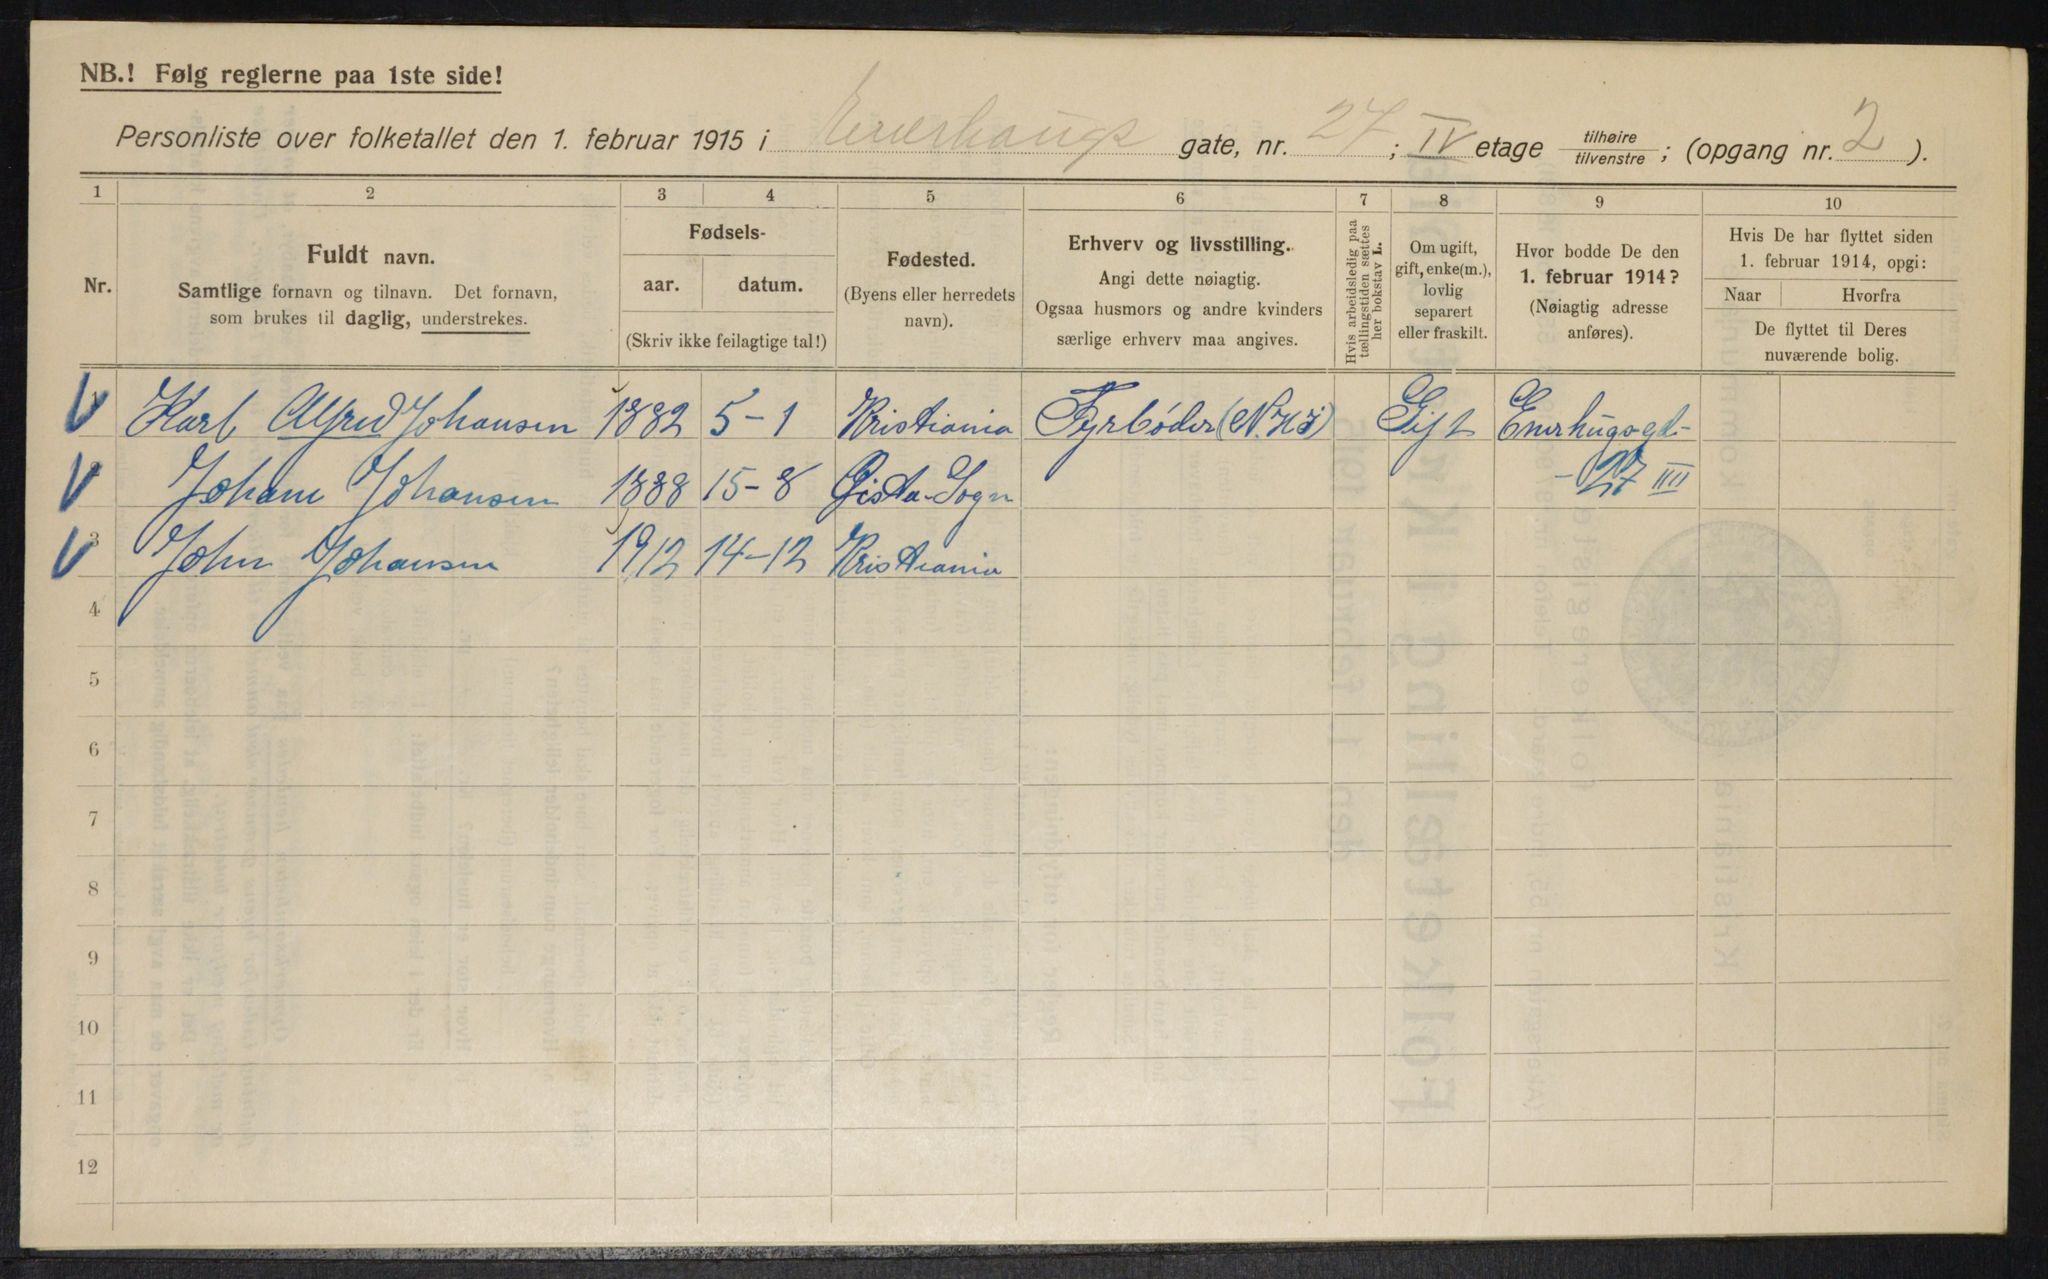 NB.! Følg reglerne paa 1ste side!
Personliste over folketallet den 1. februar 1915 i Enerhaugs gate, nr. 27; IV etage tilhøire/tilvenstre; (opgang nr. 2).
1 2 3 4 5 6 7 8 9 10
Nr.
Fuldt navn.
Samtlige fornavn og tilnavn. Det fornavn,
som brukes til daglig, understrekes.
Fødsels-
aar. datum.
(Skriv ikke feilagtige tal!)
Fødested.
(Byens eller herredets
navn).
Erhverv og livsstilling.
Angi dette nøiagtig.
Ogsaa husmors og andre kvinders
særlige erhverv maa angives.
Hvis arbeidsledig paa
tællingstiden sættes
her bokstav L.
Om ugift,
gift, enke(m.),
lovlig
separert
eller fraskilt.
Hvor bodde De den
1. februar 1914?
(Nøiagtig adresse
anføres).
Hvis De har flyttet siden
1. februar 1914, opgi:
Naar Hvorfra
De flyttet til Deres
nuværende bolig.
1 Karl Alfred Johansen 1882 5-1 Kristiania Fyrbøder Gift Enerhugsgd-
- 27 IIII
2 Johane Johansen 1888 15-8 Sogn
3 John Johansen 1912 14-12 Kristiania
4
5
6
7
8
9
10
11
12